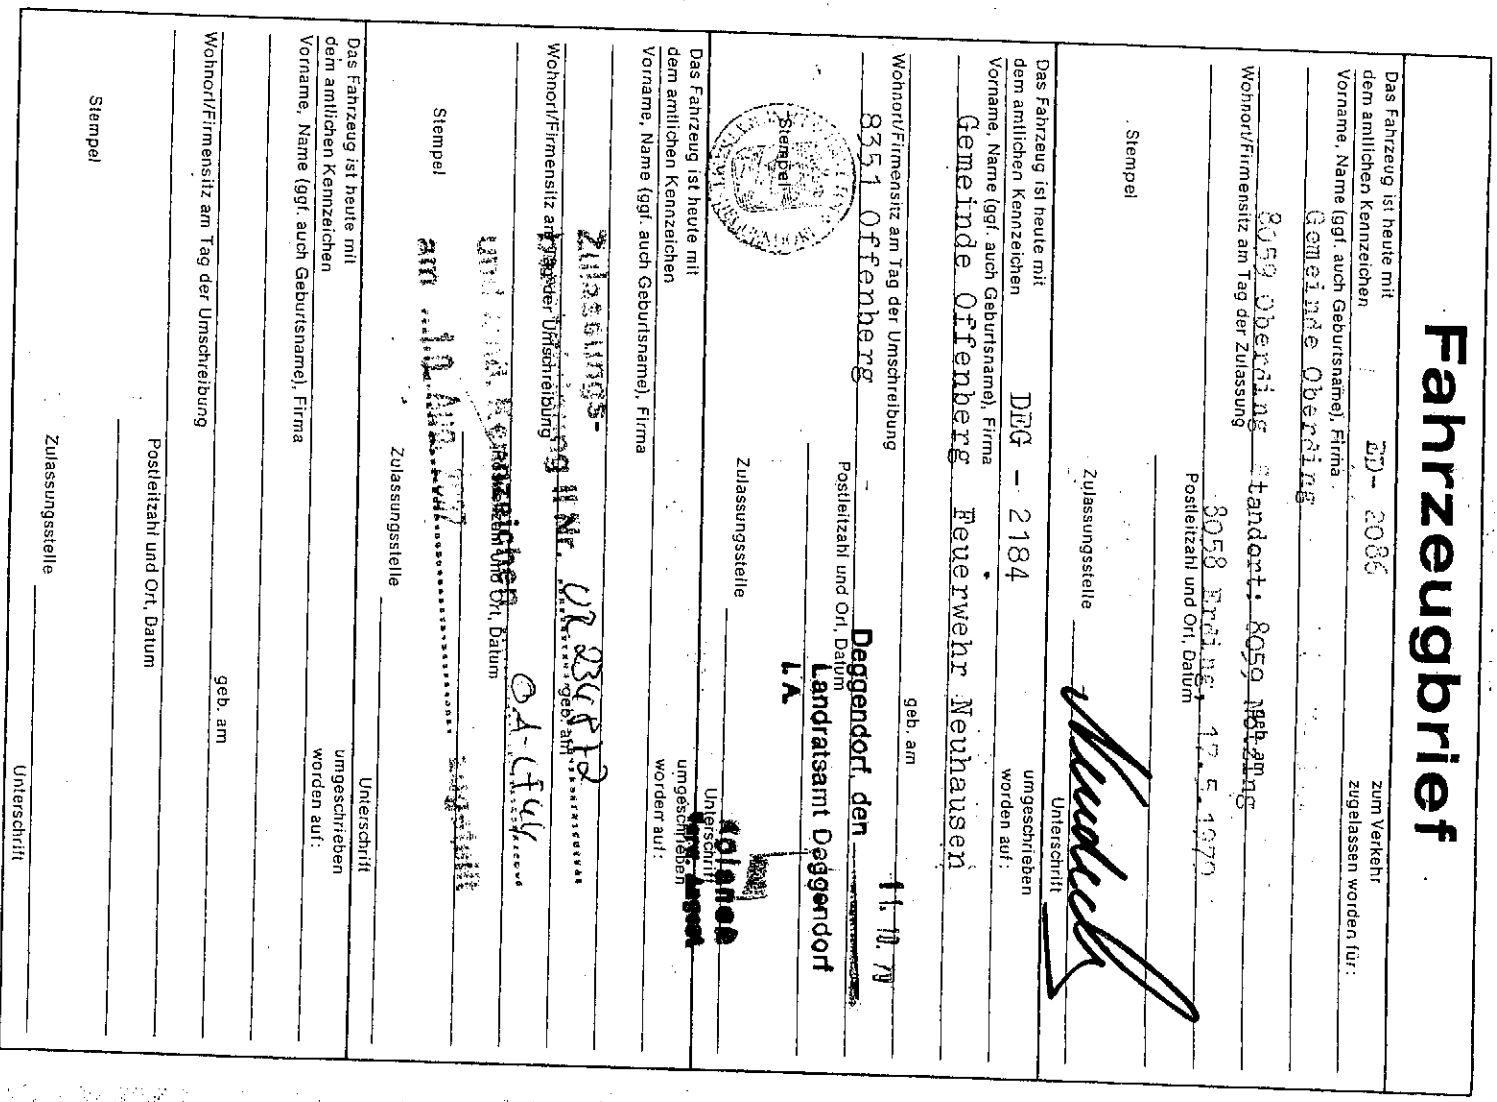 Fahrzeugbrief
Das Fahrzeug ist heute mit
dem amtlichen Kennzeichen ED- 2086 zum Verkehr
zugelassen worden für:
Vorname, Name (ggf. auch Geburtsname), Firma
Gemeinde Oberding
8059 Oberding Standort: 8059 Notzing
Wohnort/Firmensitz am Tag der Zulassung geb. am
8058 Erding, 12.5.1970
Postleitzahl und Ort, Datum
Stempel
Zulassungsstelle
Unterschrift
Das Fahrzeug ist heute mit
dem amtlichen Kennzeichen DEG - 2184 umgeschrieben
worden auf:
Vorname, Name (ggf. auch Geburtsname), Firma
Gemeinde Offenberg Feuerwehr Neuhausen
Wohnort/Firmensitz am Tag der Umschreibung geb. am
8351 Offenberg
Deggendorf, den 11. 10. 79
Postleitzahl und Ort, Datum
Landratsamt Deggendorf
I. A.
Stempel
Zulassungsstelle
Unterschrift
Das Fahrzeug ist heute mit
dem amtlichen Kennzeichen umgeschrieben
worden auf:
Vorname, Name (ggf. auch Geburtsname), Firma
Zulassungs-
II Nr.
Wohnort/Firmensitz am Tag der Umschreibung geb. am
und amtl. Kennzeichen
Postleitzahl und Ort, Datum
am
Stempel
Zulassungsstelle
Unterschrift
Das Fahrzeug ist heute mit
dem amtlichen Kennzeichen umgeschrieben
worden auf:
Vorname, Name (ggf. auch Geburtsname), Firma
Wohnort/Firmensitz am Tag der Umschreibung geb. am
Postleitzahl und Ort, Datum
Stempel
Zulassungsstelle
Unterschrift